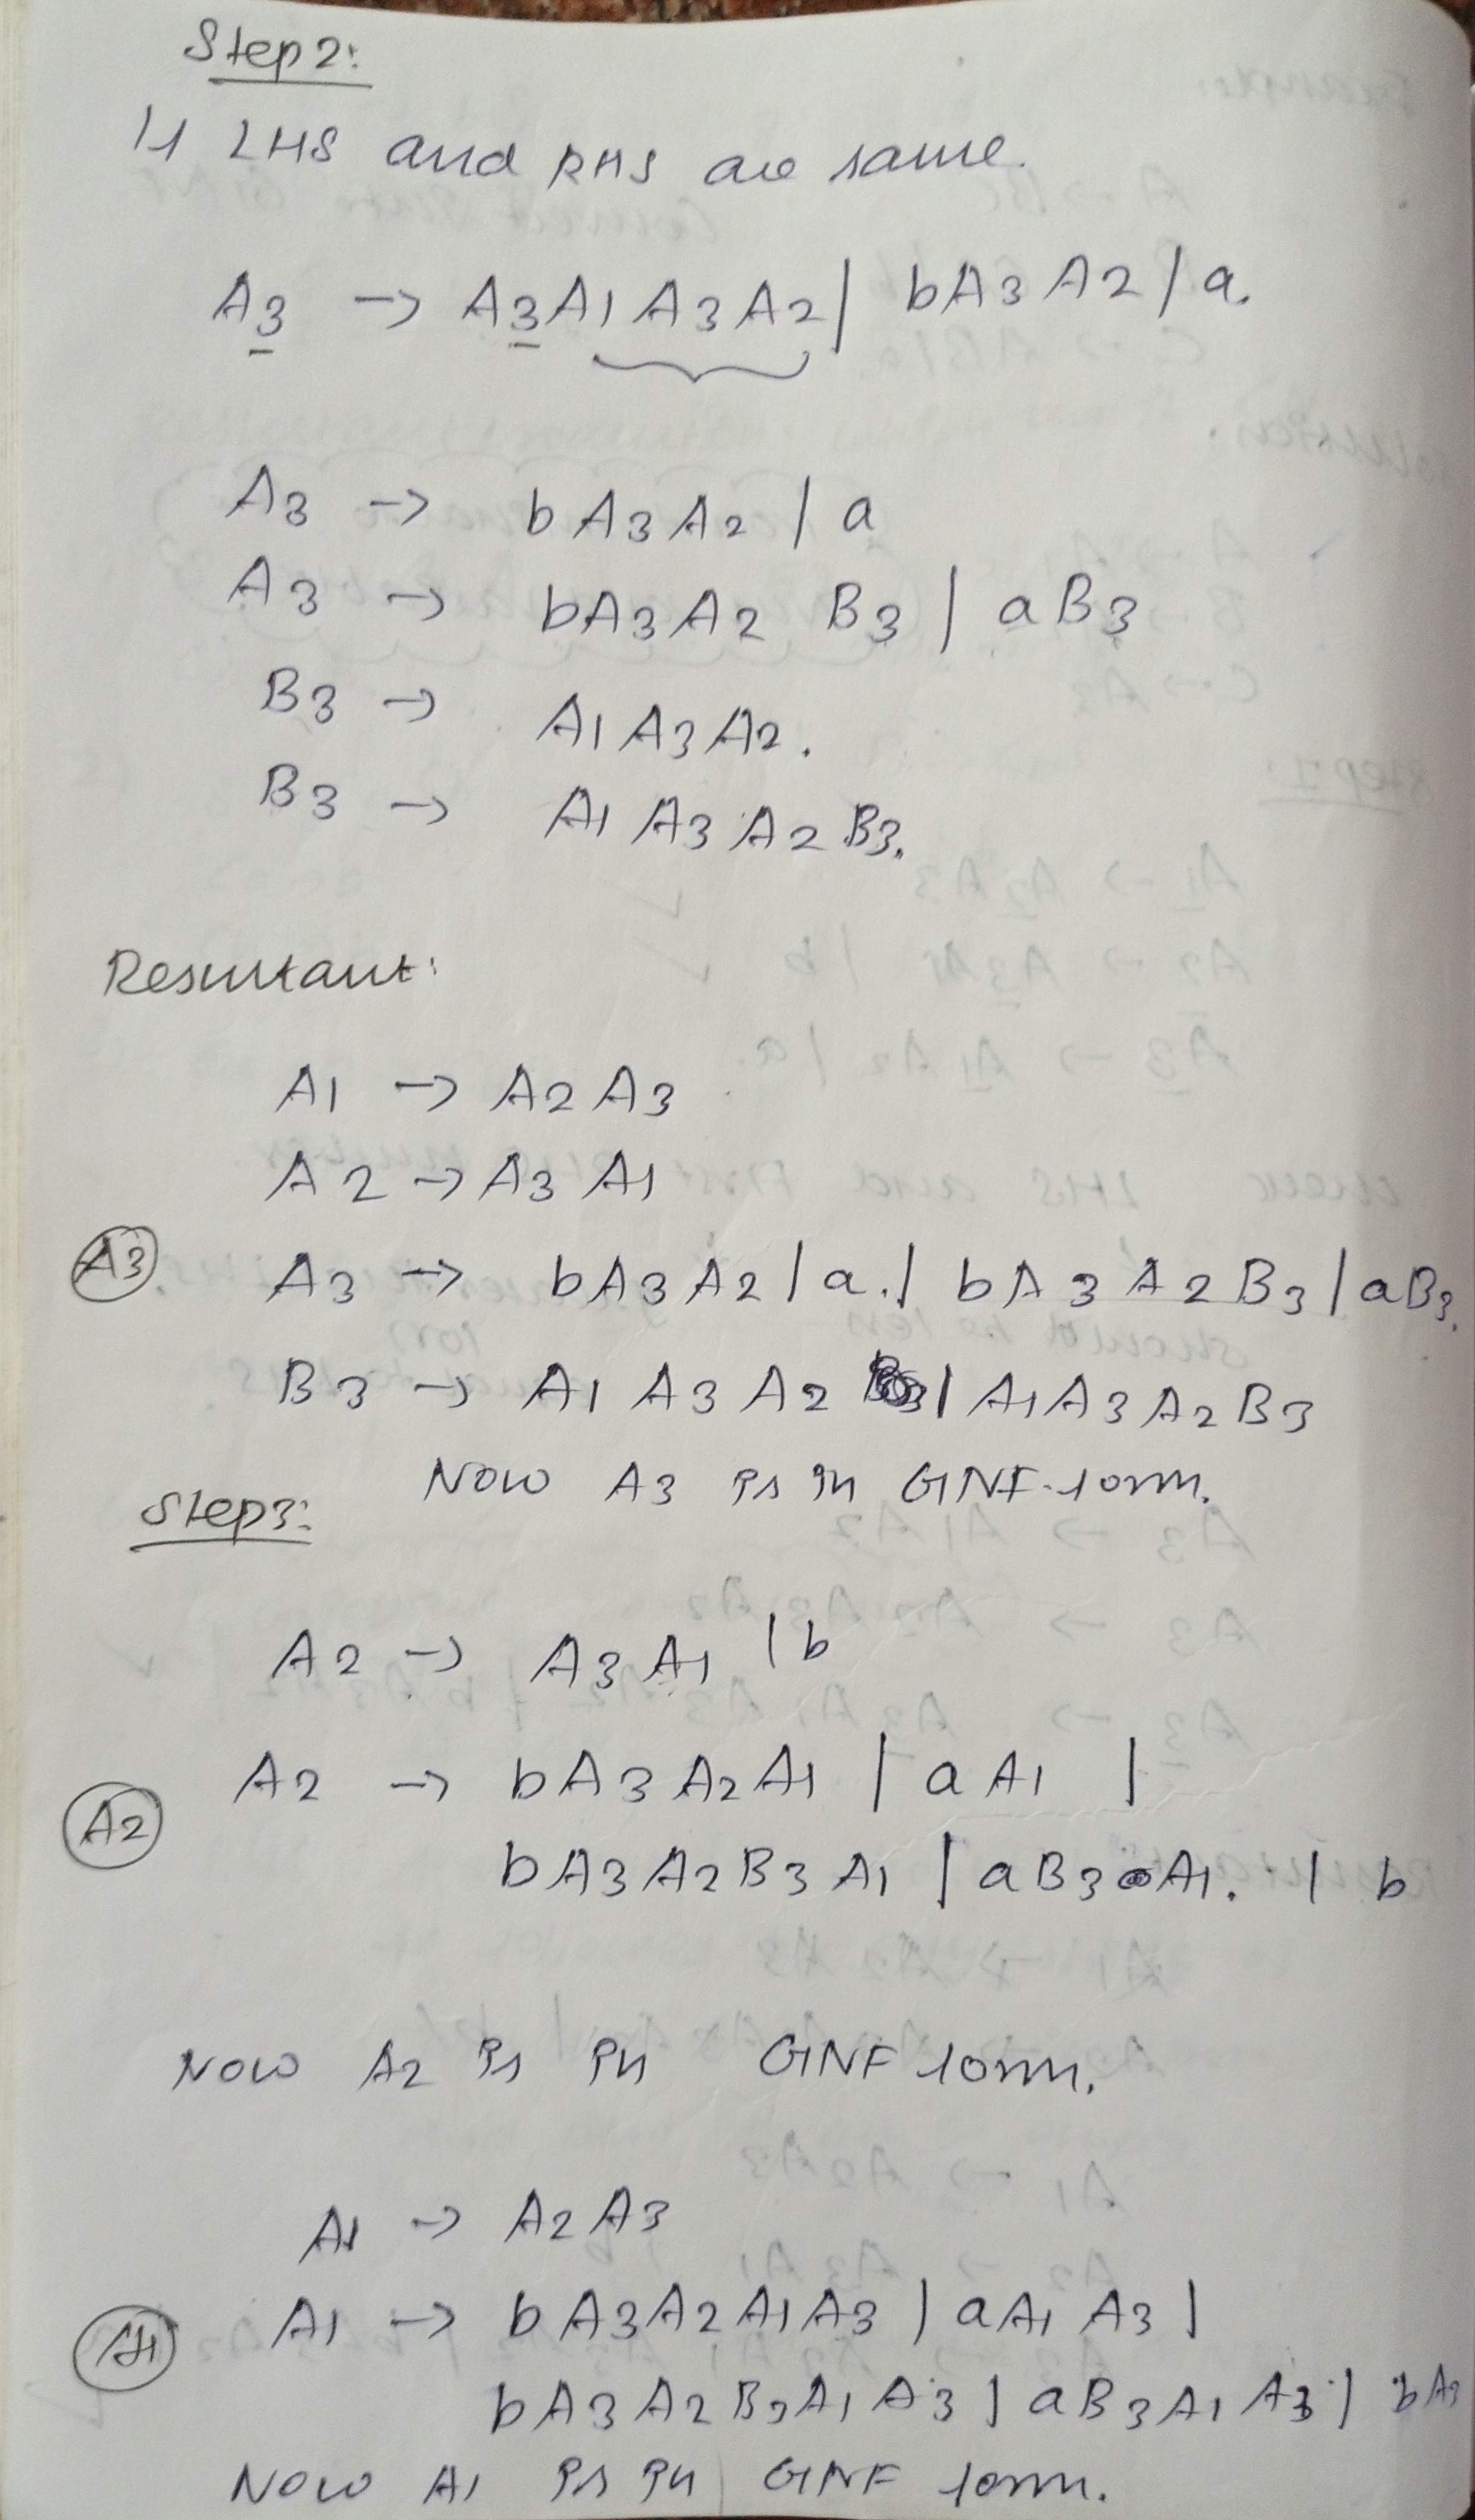 Step 2:
If LHS and RHS are same.
A3 → A3 A1 A3 A2 | bA3 A2 | a.
A3 → bA3 A2 | a
A3 → bA3 A2 B3 | aB3
B3 → A1 A3 A2.
B3 → A1 A3 A2 B3.
Resultant:
A1 → A2 A3
A2 → A3 A1
A3 A3 → bA3 A2 | a. | bA3 A2 B3 | aB3.
B3 → A1 A3 A2 | A1 A3 A2 B3
Now A3 is in GNF form.
Step3:
A2 → A3 A1 | b
A2 → bA3 A2 A1 | aA1 |
A2
bA3 A2 B3 A1 | aB3 A1. | b
Now A2 is in GNF form.
A1 → A2 A3
A1 → bA3 A2 A1 A3 | aA1 A3 |
A1
bA3 A2 B3 A1 A3 | aB3 A1 A3 | bA3
Now A1 is in GNF form.